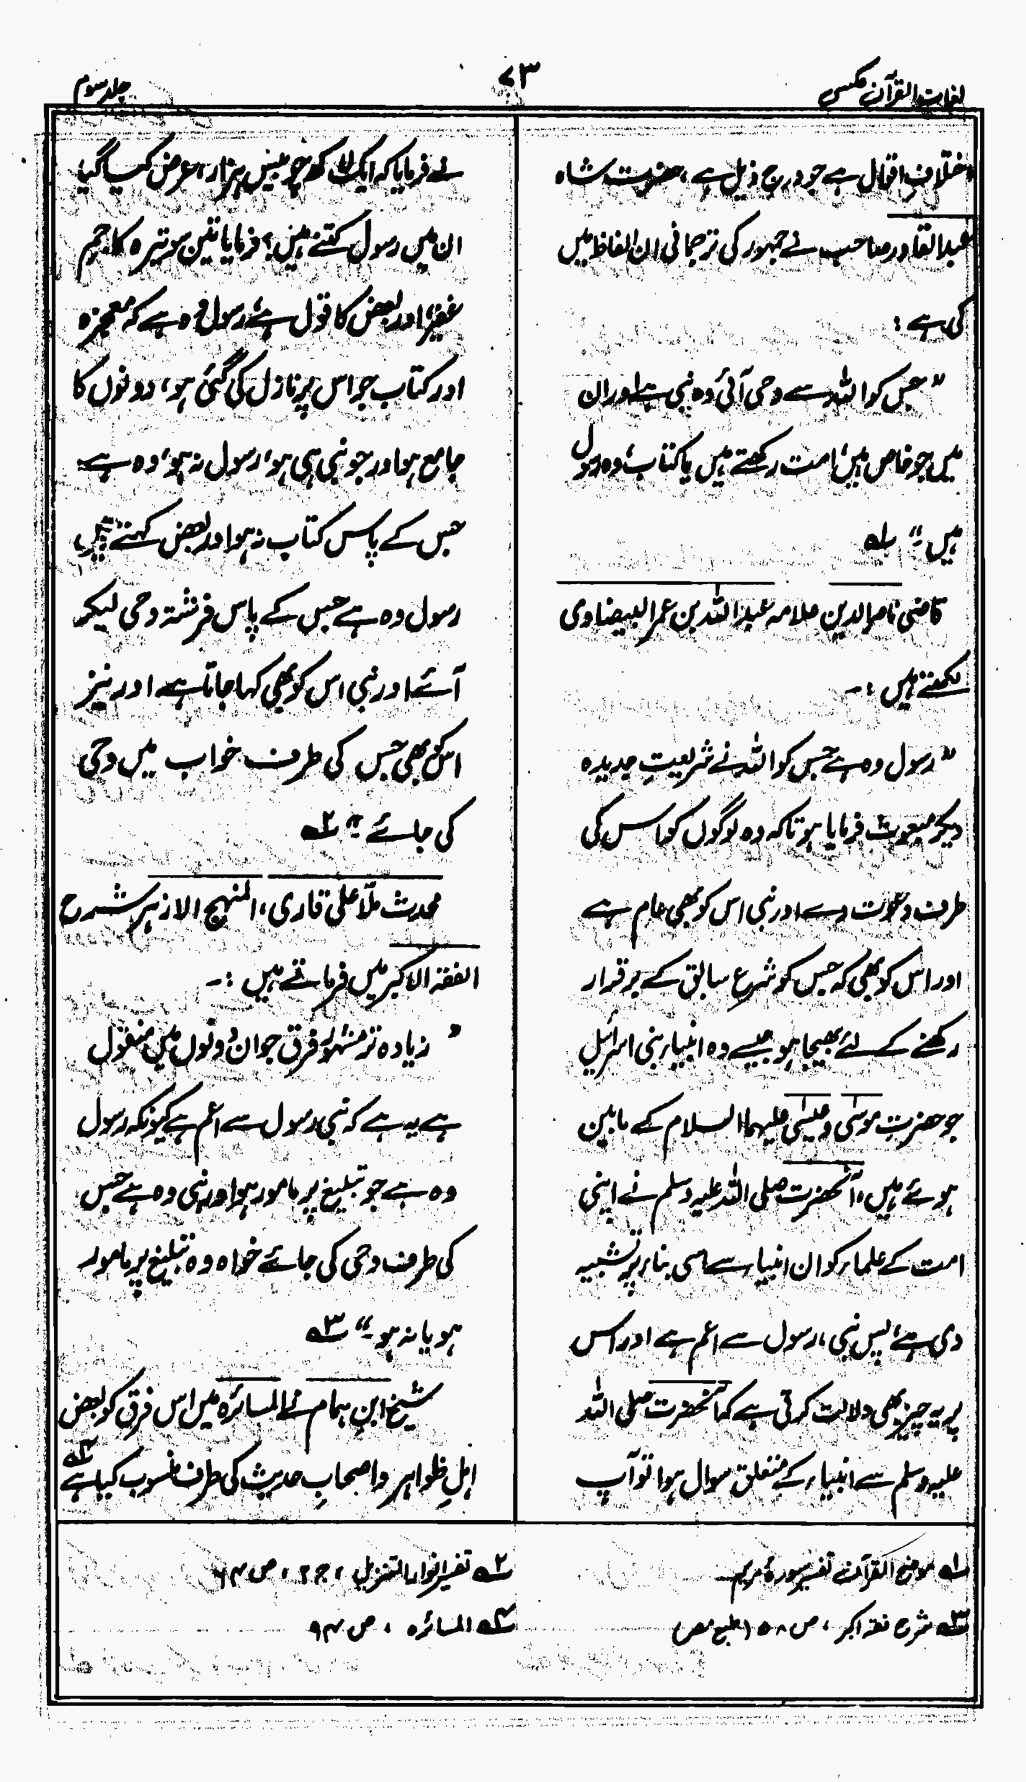 لغات القرآن عکسی
۷۳
جلد سوم
اختلاف اقوال ہے جو درج ذیل ہے، حضرت شاہ
عبدالقادر صاحب نے جمہور کی ترجمانی ان الفاظ میں
کی ہے :
” جس کو اللہ سے وحی آئی وہ نبی ہے اور ان
میں جو خاص ہیں، امت رکھتے ہیں یا کتاب، وہ رسول
ہیں۔“ ۱ہ
قاضی ناصر الدین علامہ عبداللہ بن عمر البیضاوی
لکھتے ہیں :۔
” رسول وہ ہے جس کو اللہ نے شریعتِ جدیدہ
دیکر مبعوث فرمایا ہو تاکہ وہ لوگوں کو اس کی
طرف دعوت دے اور نبی اس کو بھی عام ہے
اور اس کو بھی کہ جس کو شرع سابق کے برقرار
رکھنے کے لئے بھیجا ہو جیسے وہ انبیاء بنی اسرائیل
جو حضرت موسٰی و عیسٰی علیہما السلام کے مابین
ہوئے ہیں، آنحضرت صلی اللہ علیہ وسلم نے اپنی
امت کے علماء کو ان انبیاء سے اسی بناء پر تشبیہ
دی ہے، پس نبی، رسول سے اعم ہے اور اس
پر یہ چیز بھی دلالت کرتی ہے کہ آنحضرت صلی اللہ
علیہ وسلم سے انبیاء کے متعلق سوال ہوا تو آپ
نے فرمایا کہ ایک لاکھ چوبیس ہزار، عرض کیا گیا
ان میں رسول کتنے ہیں؟ فرمایا تین سو تیرہ کا جم
غفیر، اور بعض کا قول ہے، رسول وہ ہے کہ معجزہ
اور کتاب جو اس پر نازل کی گئی ہو، دونوں کا
جامع ہو اور جو نبی ہی ہو، رسول نہ ہو، وہ ہے
جس کے پاس کتاب نہ ہو اور بعض کہتے ہیں
رسول وہ ہے جس کے پاس فرشتہ وحی لیکر
آئے اور نبی اس کو بھی کہا جاتا ہے اور نیز
اس کو بھی جس کی طرف خواب میں وحی
کی جائے۔“ ۲ہ
محدث ملّا علی قاری، المنہج الازہر شرح
الفقہ الاکبر میں فرماتے ہیں :۔
” زیادہ تر مشہور فرق جو ان دونوں میں منقول
ہے یہ ہے کہ نبی رسول سے اعم ہے کیونکہ رسول
وہ ہے جو تبلیغ پر مامور ہو اور نبی وہ ہے جس
کی طرف وحی کی جائے خواہ وہ تبلیغ پر مامور
ہو یا نہ ہو۔“ ۳ہ
شیخ ابن ہمام نے المسائرہ میں اس فرق کو بعض
اہلِ ظواہر و اصحابِ حدیث کی طرف منسوب کیا ہے ۴ہ
۱ہ موضح القرآن تفسیر سورۂ مریم
۲ہ تفسیر انوار التنزیل، ج ۲، ص ۶۴
۳ہ شرح فقہ اکبر، ص ۵۸ (طبع مصر)
۴ہ المسائرہ، ص ۹۴